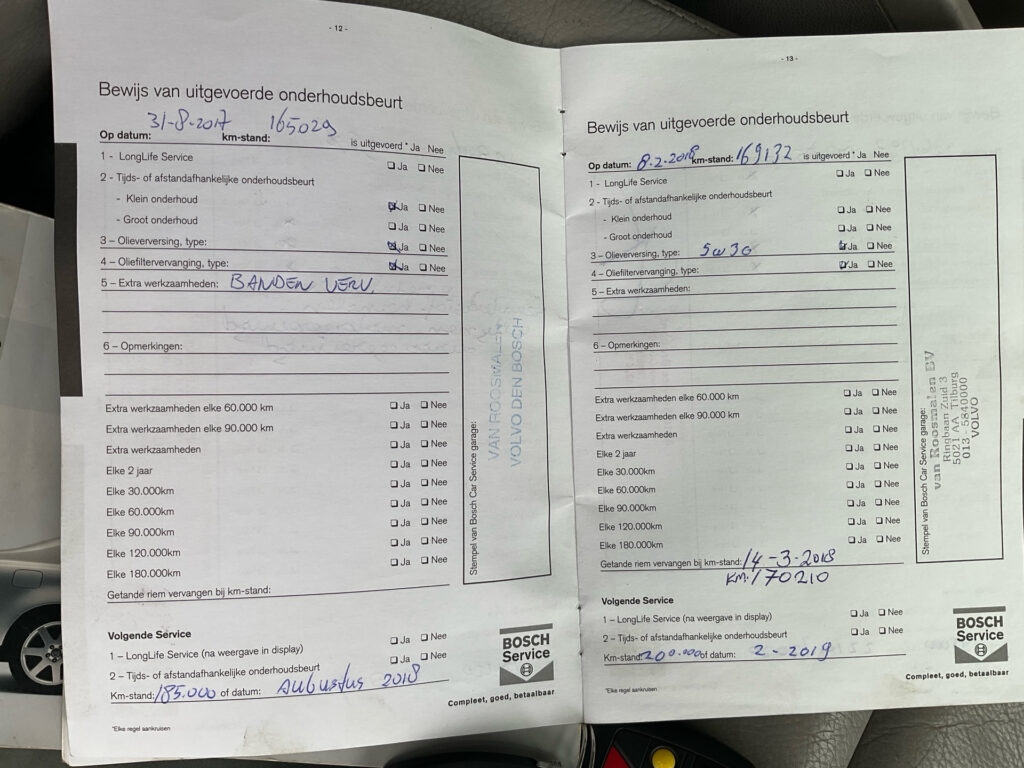 - 12 -
Bewijs van uitgevoerde onderhoudsbeurt
Op datum: 31-8-2017 km-stand: 165029 is uitgevoerd * Ja Nee
1 - LongLife Service Ja Nee
2 - Tijds- of afstandafhankelijke onderhoudsbeurt
- Klein onderhoud Ja Nee
- Groot onderhoud Ja Nee
3 – Olieverversing, type: Ja Nee
4 – Oliefiltervervanging, type: Ja Nee
5 – Extra werkzaamheden: BANDEN VERV.
6 – Opmerkingen:
Extra werkzaamheden elke 60.000 km Ja Nee
Extra werkzaamheden elke 90.000 km Ja Nee
Extra werkzaamheden Ja Nee
Elke 2 jaar Ja Nee
Elke 30.000km Ja Nee
Elke 60.000km Ja Nee
Elke 90.000km Ja Nee
Elke 120.000km Ja Nee
Elke 180.000km Ja Nee
Getande riem vervangen bij km-stand:
Stempel van Bosch Car Service garage:
VAN ROOSMALEN
VOLVO DEN BOSCH
Volgende Service
1 – LongLife Service (na weergave in display) Ja Nee
2 – Tijds- of afstandafhankelijke onderhoudsbeurt Ja Nee
Km-stand: 185.000 of datum: Augustus 2018
*Elke regel aankruisen
BOSCH
Service
Compleet, goed, betaalbaar
- 13 -
Bewijs van uitgevoerde onderhoudsbeurt
Op datum: 8-2-2018 km-stand: 169132 is uitgevoerd * Ja Nee
1 - LongLife Service Ja Nee
2 - Tijds- of afstandafhankelijke onderhoudsbeurt
- Klein onderhoud Ja Nee
- Groot onderhoud Ja Nee
3 – Olieverversing, type: 5w30 Ja Nee
4 – Oliefiltervervanging, type: Ja Nee
5 – Extra werkzaamheden:
6 – Opmerkingen:
Extra werkzaamheden elke 60.000 km Ja Nee
Extra werkzaamheden elke 90.000 km Ja Nee
Extra werkzaamheden Ja Nee
Elke 2 jaar Ja Nee
Elke 30.000km Ja Nee
Elke 60.000km Ja Nee
Elke 90.000km Ja Nee
Elke 120.000km Ja Nee
Elke 180.000km Ja Nee
Getande riem vervangen bij km-stand: 14-3-2018
KM: 170210
Stempel van Bosch Car Service garage:
van Roosmalen BV
Ringbaan Zuid 3
5021 AA Tilburg
013 - 5840000
VOLVO
Volgende Service
1 – LongLife Service (na weergave in display) Ja Nee
2 – Tijds- of afstandafhankelijke onderhoudsbeurt Ja Nee
Km-stand: 200.000 of datum: 2-2019
*Elke regel aankruisen
BOSCH
Service
Compleet, goed, betaalbaar